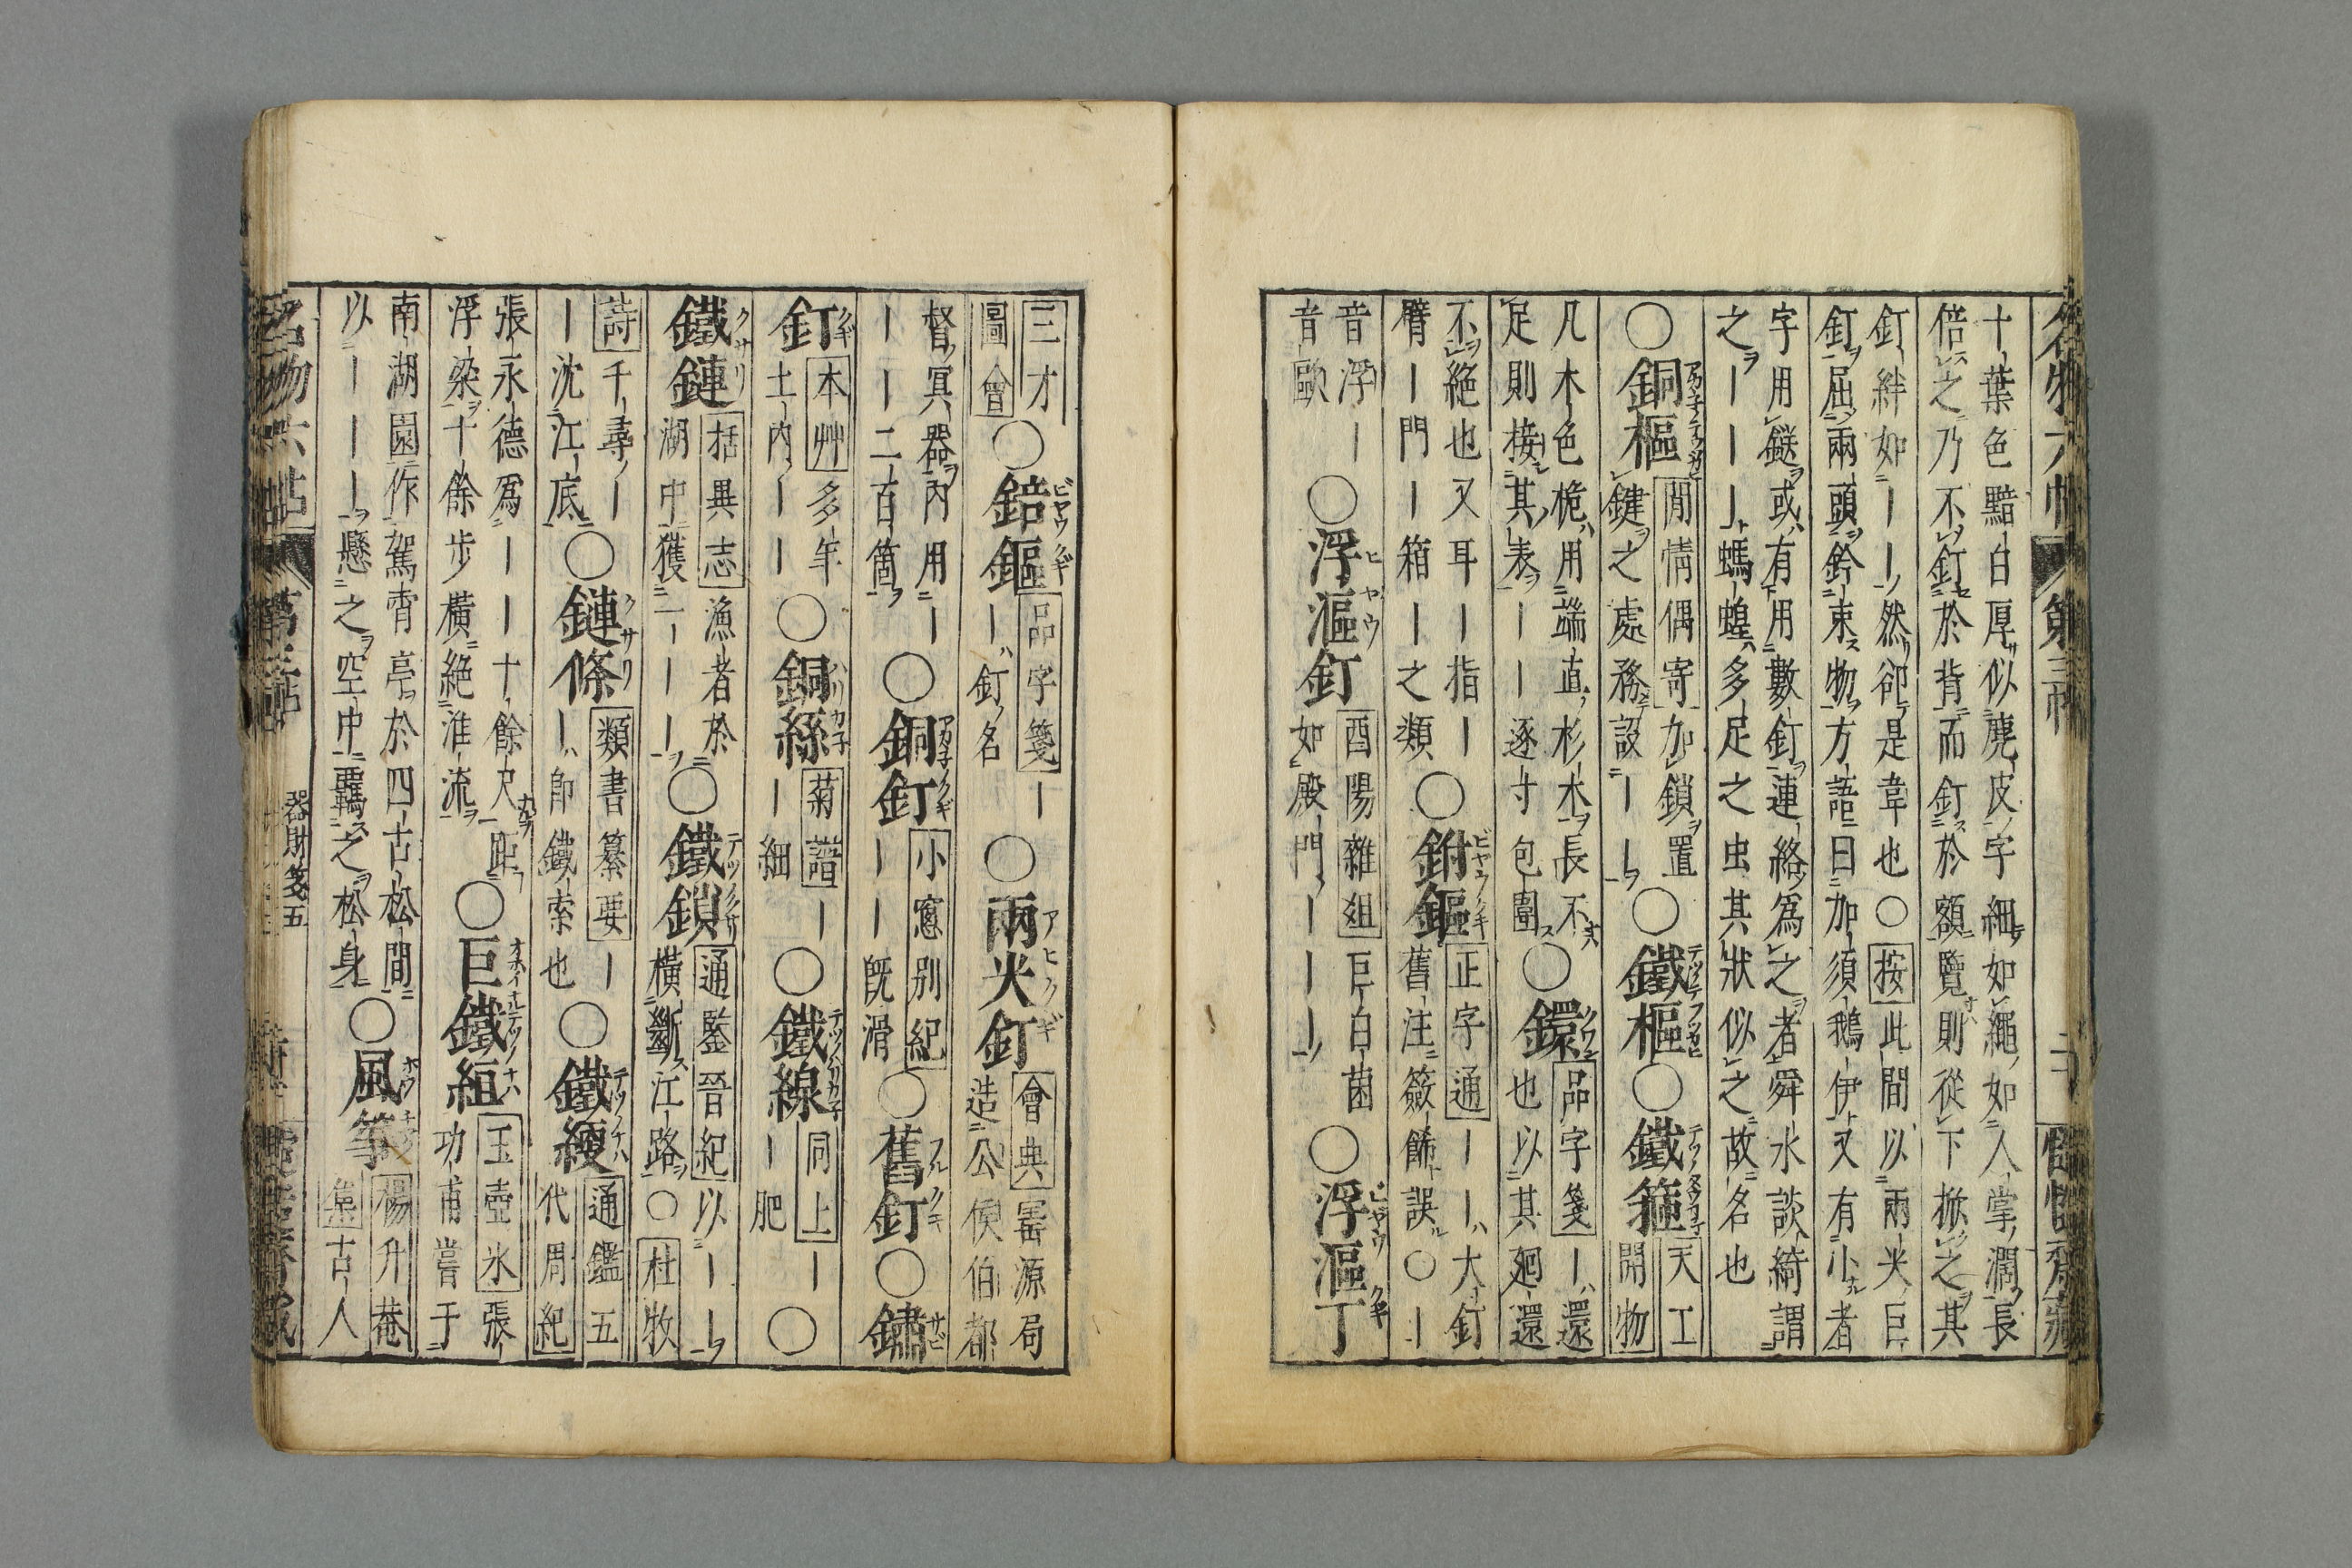 十葉色黯白厚似麂皮字細如繩如人掌濶長
倍之乃不釘於背而釘於額覽則從下掀之其
釘絆如｜｜然卻是韋也〇按此間以兩尖巨
釘屈兩頭鈴束物方語曰加須鵝伊又有小者
字用鎹或有用數釘連絡爲之者舜水談綺謂
之｜｜｜螞蝗多足之虫其狀似之故名也
〇銅樞閒情偶寄加鎖置
鍵之處務設｜｜〇鐵樞〇鐵箍天工
開物
凡木色桅用端直杉木長不
足則接其表｜｜逐寸包圍〇鐶品字箋｜還
也以其廻還
不絶也又耳｜指｜
臂｜門｜箱｜之類〇鉜鏂正字通｜｜大釘
舊注簽飾誤〇｜
音浮｜
音歐〇浮漚釘酉陽雜俎巨白菌
如殿門｜｜｜〇浮漚丁
三才
圖會〇錇鏂品字箋｜
｜釘名〇兩尖釘會典窰源局
造公侯伯都
督冥器内用｜
｜｜二百箇〇銅釘小窻别紀
｜｜既滑〇舊釘〇鏽
釘本艸多年
土内｜｜〇銅絲菊譜｜
｜細〇鐵線同上｜
｜肥〇
鐵鏈括異志漁者於
湖中獲一｜｜｜〇鐵鎖通鑒晉紀以｜｜
横斷江路〇杜牧
詩千尋｜
｜沈江底〇鏈條類書纂要｜
｜即鐵索也〇鐵綆通鑑五
代周紀
張永德爲｜｜十餘尺距
浮梁十餘步横絶淮流〇巨鐵絙玉壺氷張
功甫嘗于
南湖園作駕霄亭於四古松間
以｜｜｜懸之空中羈之松身〇風箏楊升菴
集古人
名物六帖 第三帖 器財箋五